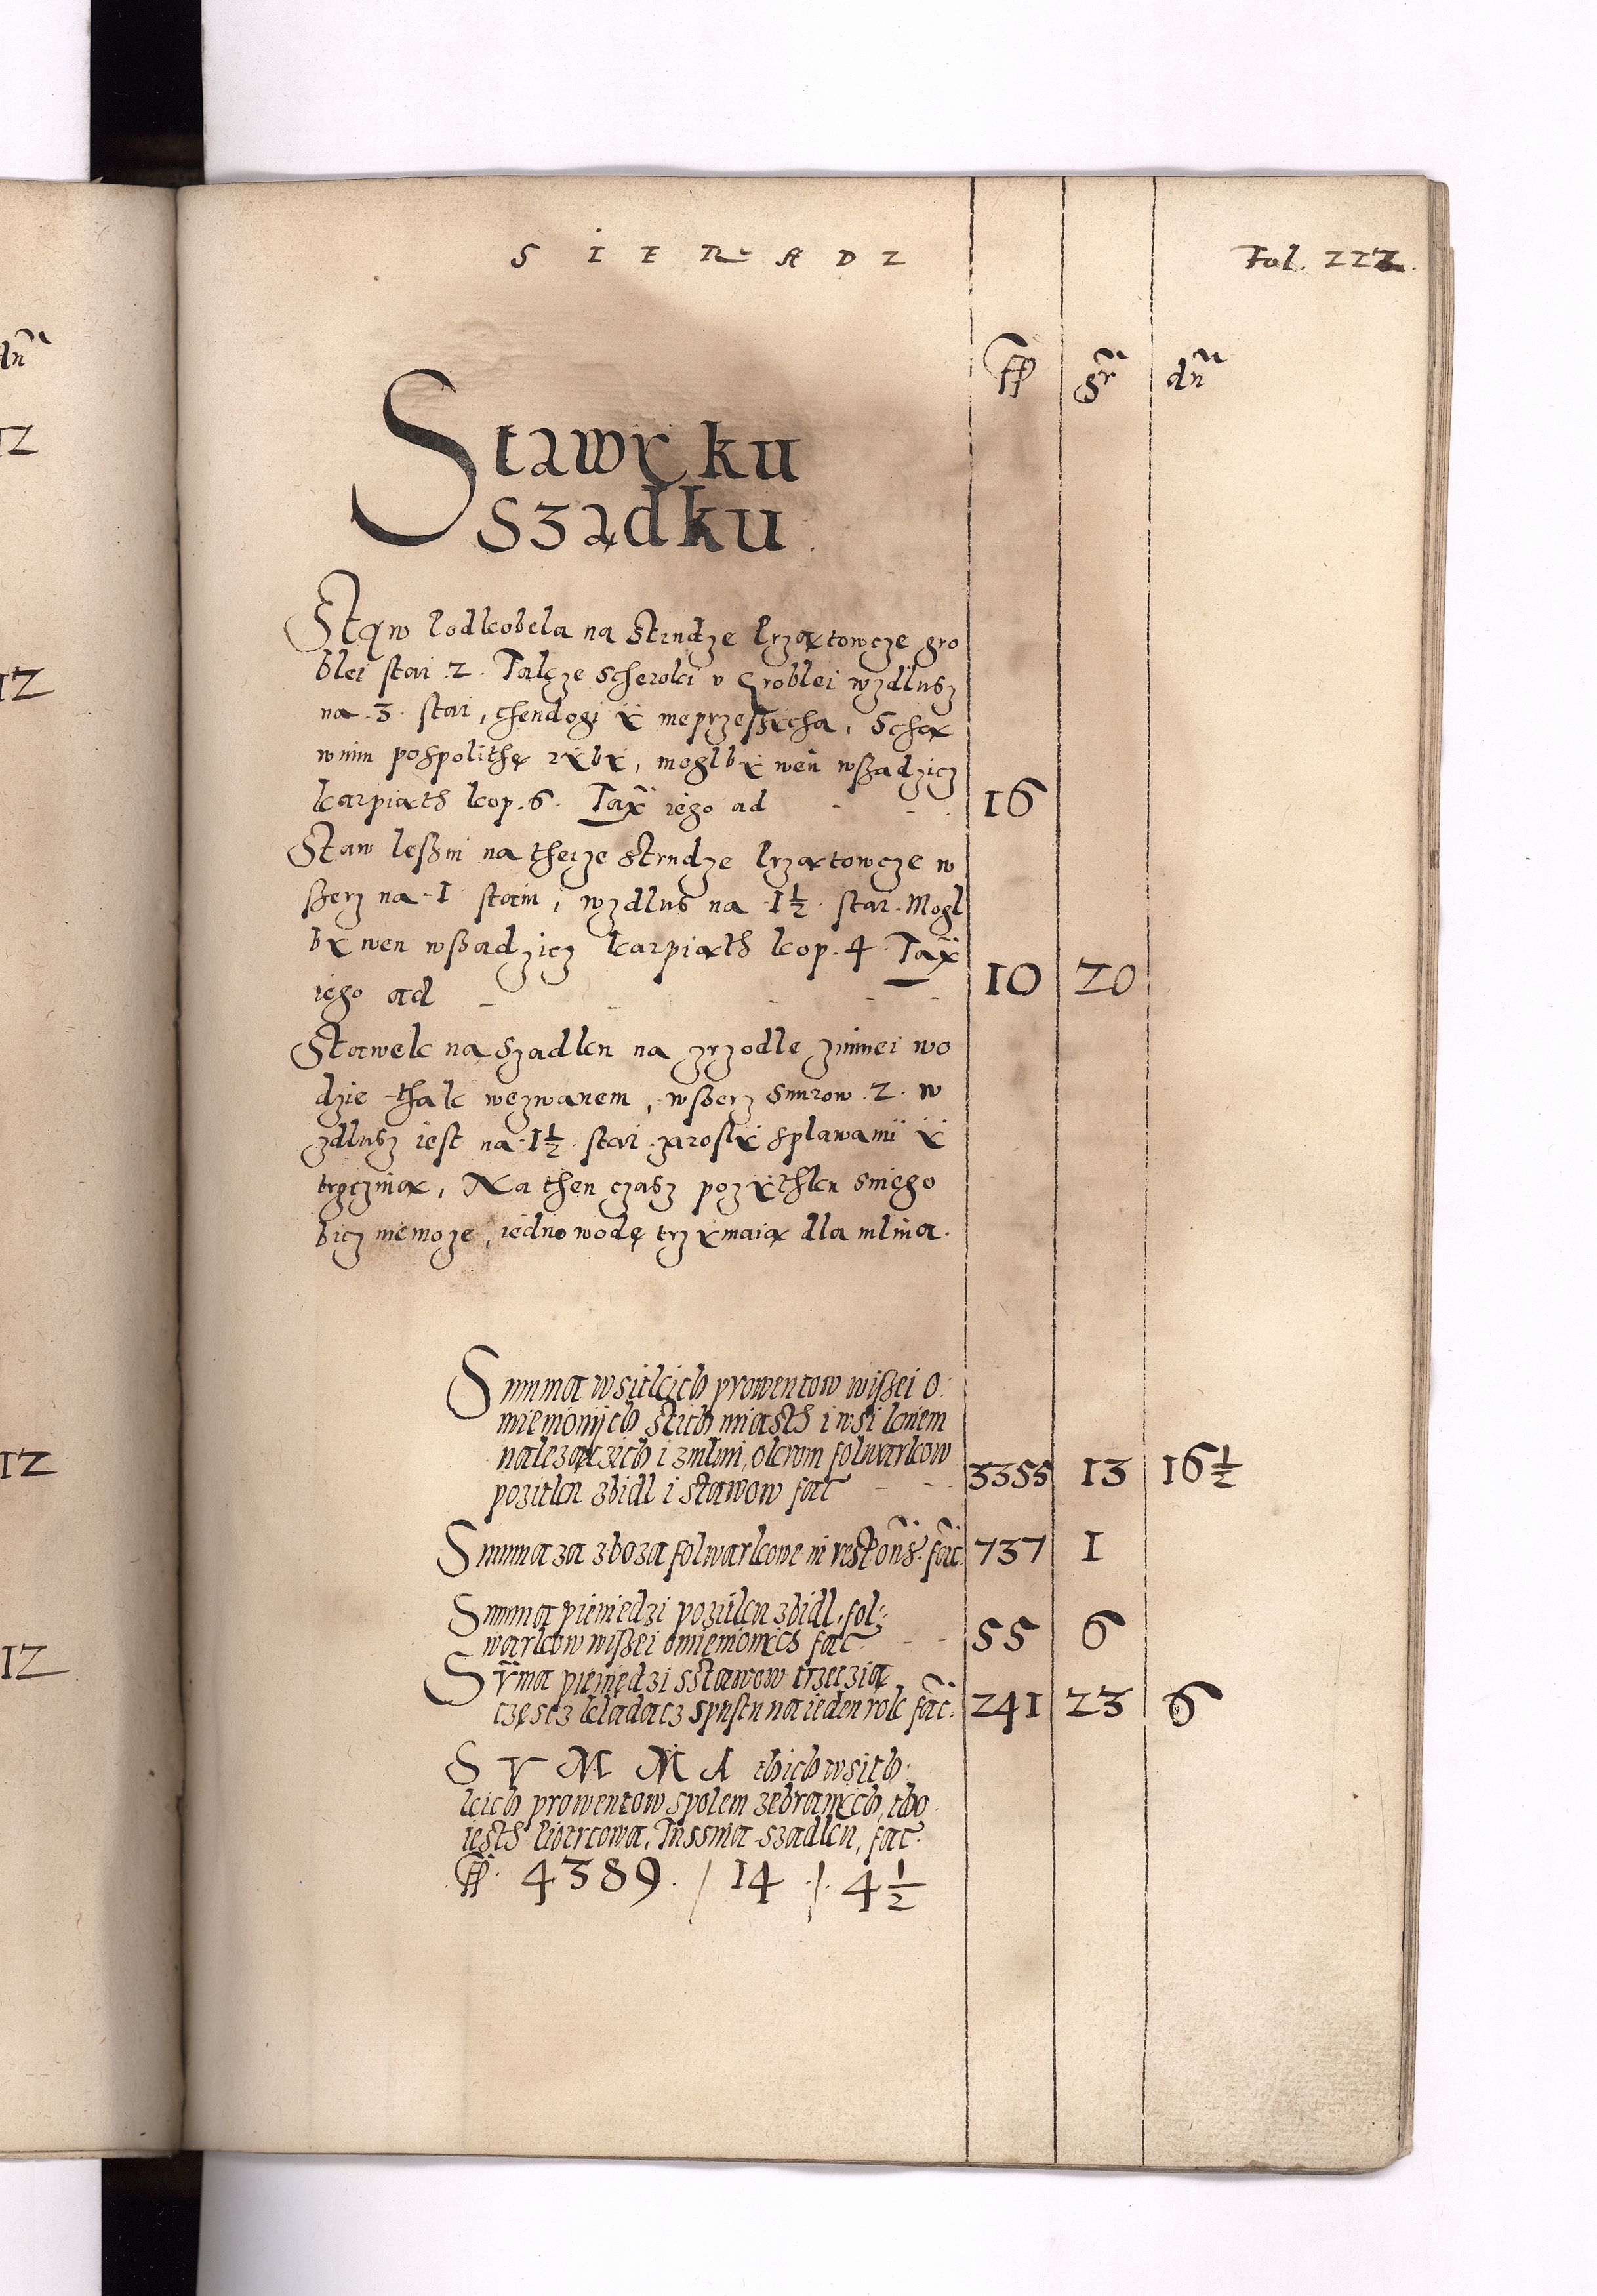 SIERADZ
Fol. 222.
fl gr dn
Stawy ku
Szadku
Staw kodkobela na Strudze krzaxtowcze gro
blei stai 2. Takze scheroki v Groblei wzdlusz
na 3 stai, chendogi y nieprzeßycha, Scha
w nim pospolithe ryby, moglby wen wßadzicz
karpiath kop. 6. Tax iego ad 16
Staw leßni na theize Strudze krzaxtowcze w
ßerz na 1 stain, wzdlus na 1½ stai. Mogl
by wen wßadzicz karpiath kop. 4 Tax
iego ad 10 20
Stawek na Szadku na zrzodle zimnei wo
dzie thak wezwanem, wßerz snurow 2. w
zdlusz iest na 1½ stai zarosly splawami y
trzczina, Na then czasz pozythku s niego
bicz niemoze, iedno wode trzymaia dla mlina.
Summa wsitkich prowentow wißei o
mienionijch sticb miasth i wsi kniem
nalezaczich i zmlini, okrom folwarkow
pozitku zbidl i stawow fac 3355 13 16½
Summa za zboza folwarkowe in respons. fac 737 1
Summa pieniedzi pozitku zbidl. fol:
warkow wißei omienionich fac 55 6
Suma pieniędzi sstawow trzeczią
częscz kladacz spustu na ieden rok fac. 241 23 6
SVMMA thich wsith
kich prowentow spolem zebranych, tho
iesth Piotrcowa, Tussina Szadku, fac
fl. 4389. / 14 /. 4½
dn
12
12
12
12